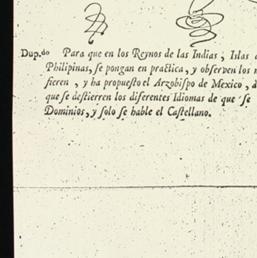 Dup.do Para que en los Reynos de las Indias, Islas
Philipinas, ſe pongan en practica, y obſerven los
fieren, y ha propueſto el Arzobiſpo de Mexico,
que ſe deſtierren los diferentes Idiomas de que ſe
Dominios, y ſolo ſe hable el Caſtellano.